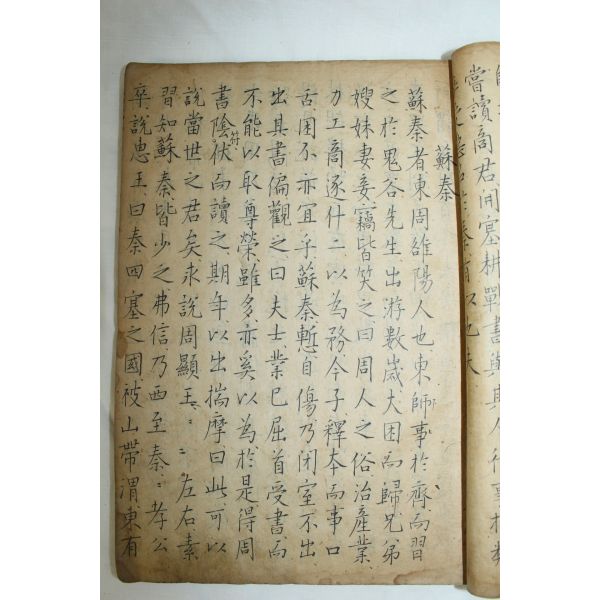 嘗讀商君開塞耕戰書與其人行事相類
蘇秦
蘇秦者東周雒陽人也東師事於齊而習
之於鬼谷先生出游數歲大困而歸兄弟
嫂妹妻妾竊皆笑之曰周人之俗治產業
力工商逐什二以為務今子釋本而事口
舌困不亦宜乎蘇秦慙自傷乃閉室不出
出其書偏觀之曰夫士業已屈首受書而
不能以取尊榮雖多亦奚以為於是得周
書陰符伏而讀之期年以出揣摩曰此可以
說當世之君矣求說周顯王〻〻左右素
習知蘇秦皆少之弗信乃西至秦〻孝公
卒說惠王曰秦四塞之國被山帶渭東有